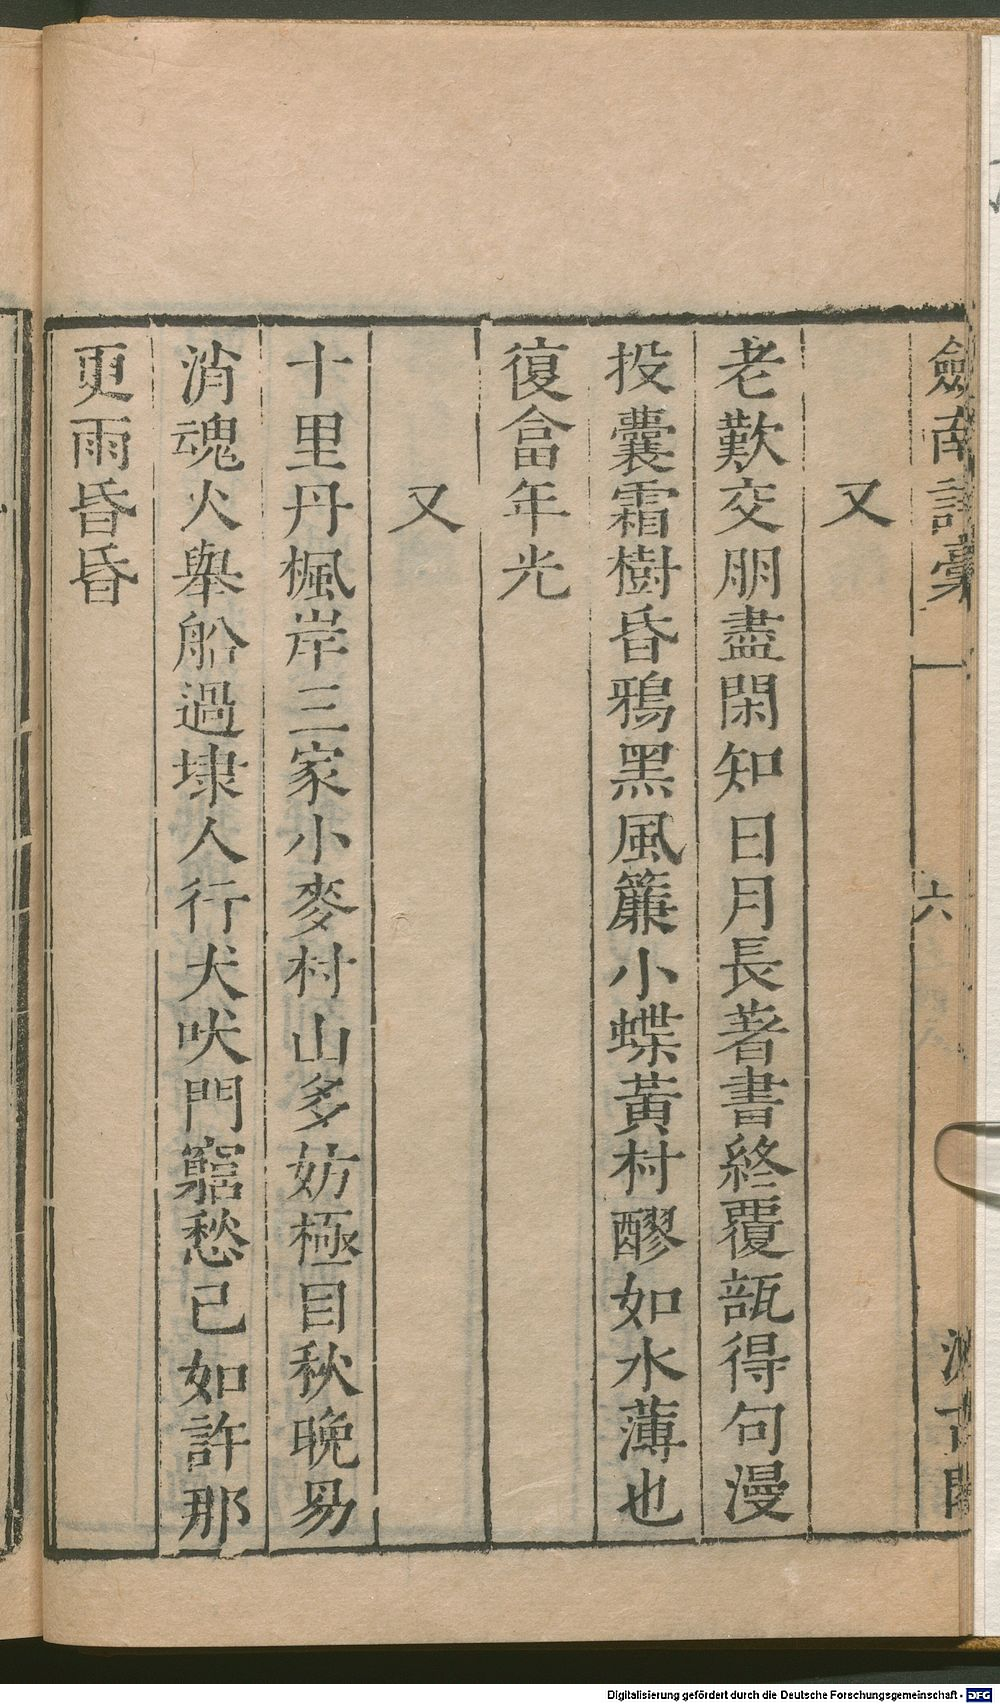 劒南詩稾
六
汲古閣
又
老歎交朋盡閑知日月長著書終覆瓿得句漫
投囊霜樹昏鴉黑風簾小蝶黃村醪如水薄也
復畣年光
又
十里丹楓岸三家小麥村山多妨極目秋晚易
消魂火舉船過埭人行犬吠門窮愁已如許那
更雨昏昏
Digitalisierung gefördert durch die Deutsche Forschungsgemeinschaft - DFG